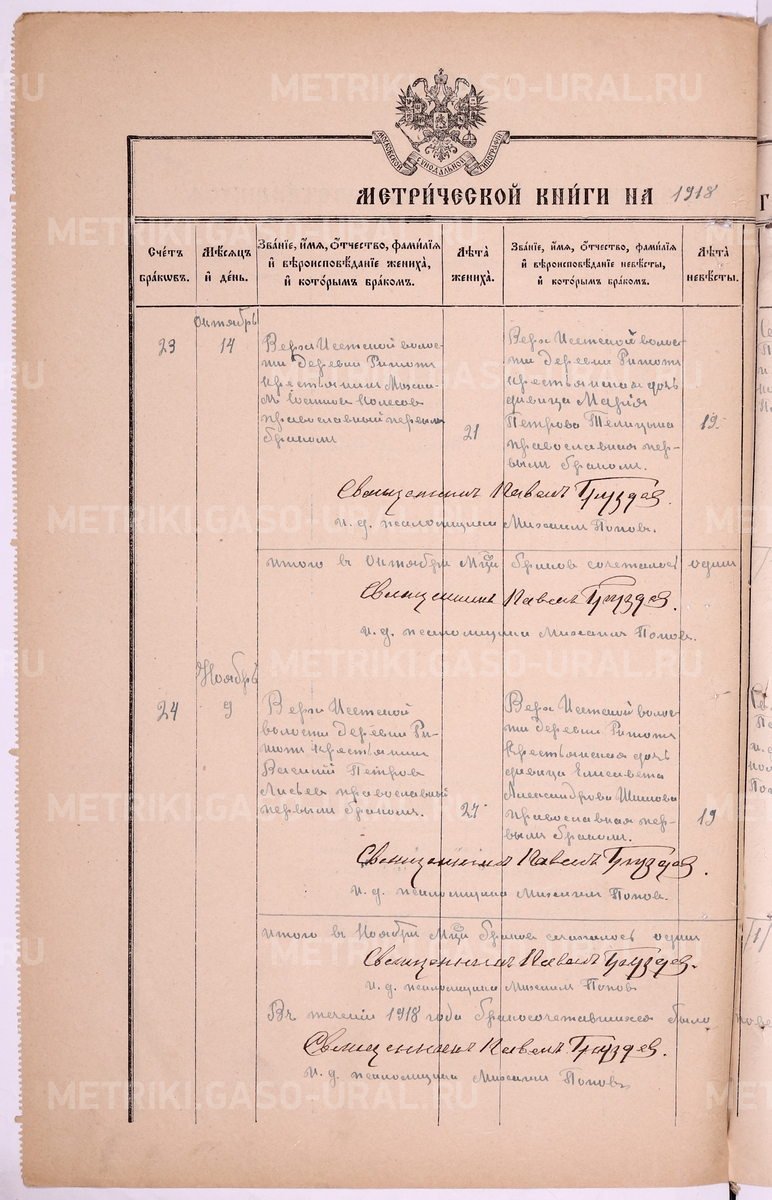 МОСКОВСКОЙ СѴНОДАЛЬНОЙ ТИПОГРАФІИ
МЕТРИ́ЧЕСКОЙ КНИ́ГИ НА 1918 Г
Сче́тъ бра́ковъ.
Мѣ́сяцъ и́ де́нь.
Зва́нїе, и́мя, ѻ́тчество, фами́лїя и́ вѣроисповѣ́данїе жениха̀, и́ кото́рымъ бра́комъ.
Лѣ́та жениха̀.
Зва́нїе, и́мя, ѻ́тчество, фами́лїя и́ вѣроисповѣ́данїе невѣ́сты, и́ кото́рымъ бра́комъ.
Лѣ́та невѣ́сты.
Октябрь
23
14
Верх Исетской волос-
ти деревни
крестьянин
Колесов
православный первым
браком
21
Верх Исетской волос-
ти деревни
крестьянская дочь
девица Мария
Петрова Телицына
православная пер-
вым браком.
19
Священникъ Павелъ Груздев.
и. д. псаломщика Михаил Попов.
итого в Октябре М-це браков сочеталось один
Священникъ Павелъ Груздев.
и. д. псаломщика Михаил Попов.
Ноябрь
24
9
Верх Исетской
волости деревни
крестьянин
Василий Петров
православный
первым браком.
27
Верх Исетской волос-
ти деревни
крестьянская дочь
девица Елисавета
Александрова
православная пер-
вым браком.
19
Священникъ Павелъ Груздев.
и. д. псаломщика Михаил Попов.
итого в Ноябре М-це браков сочеталось один
Священникъ Павелъ Груздев.
и. д. псаломщика Михаил Попов
Въ течении 1918 года бракосочетавшихся было
Священникъ Павелъ Груздев.
и. д. псаломщика Михаил Попов
METRIKI.GASO-URAL.RU